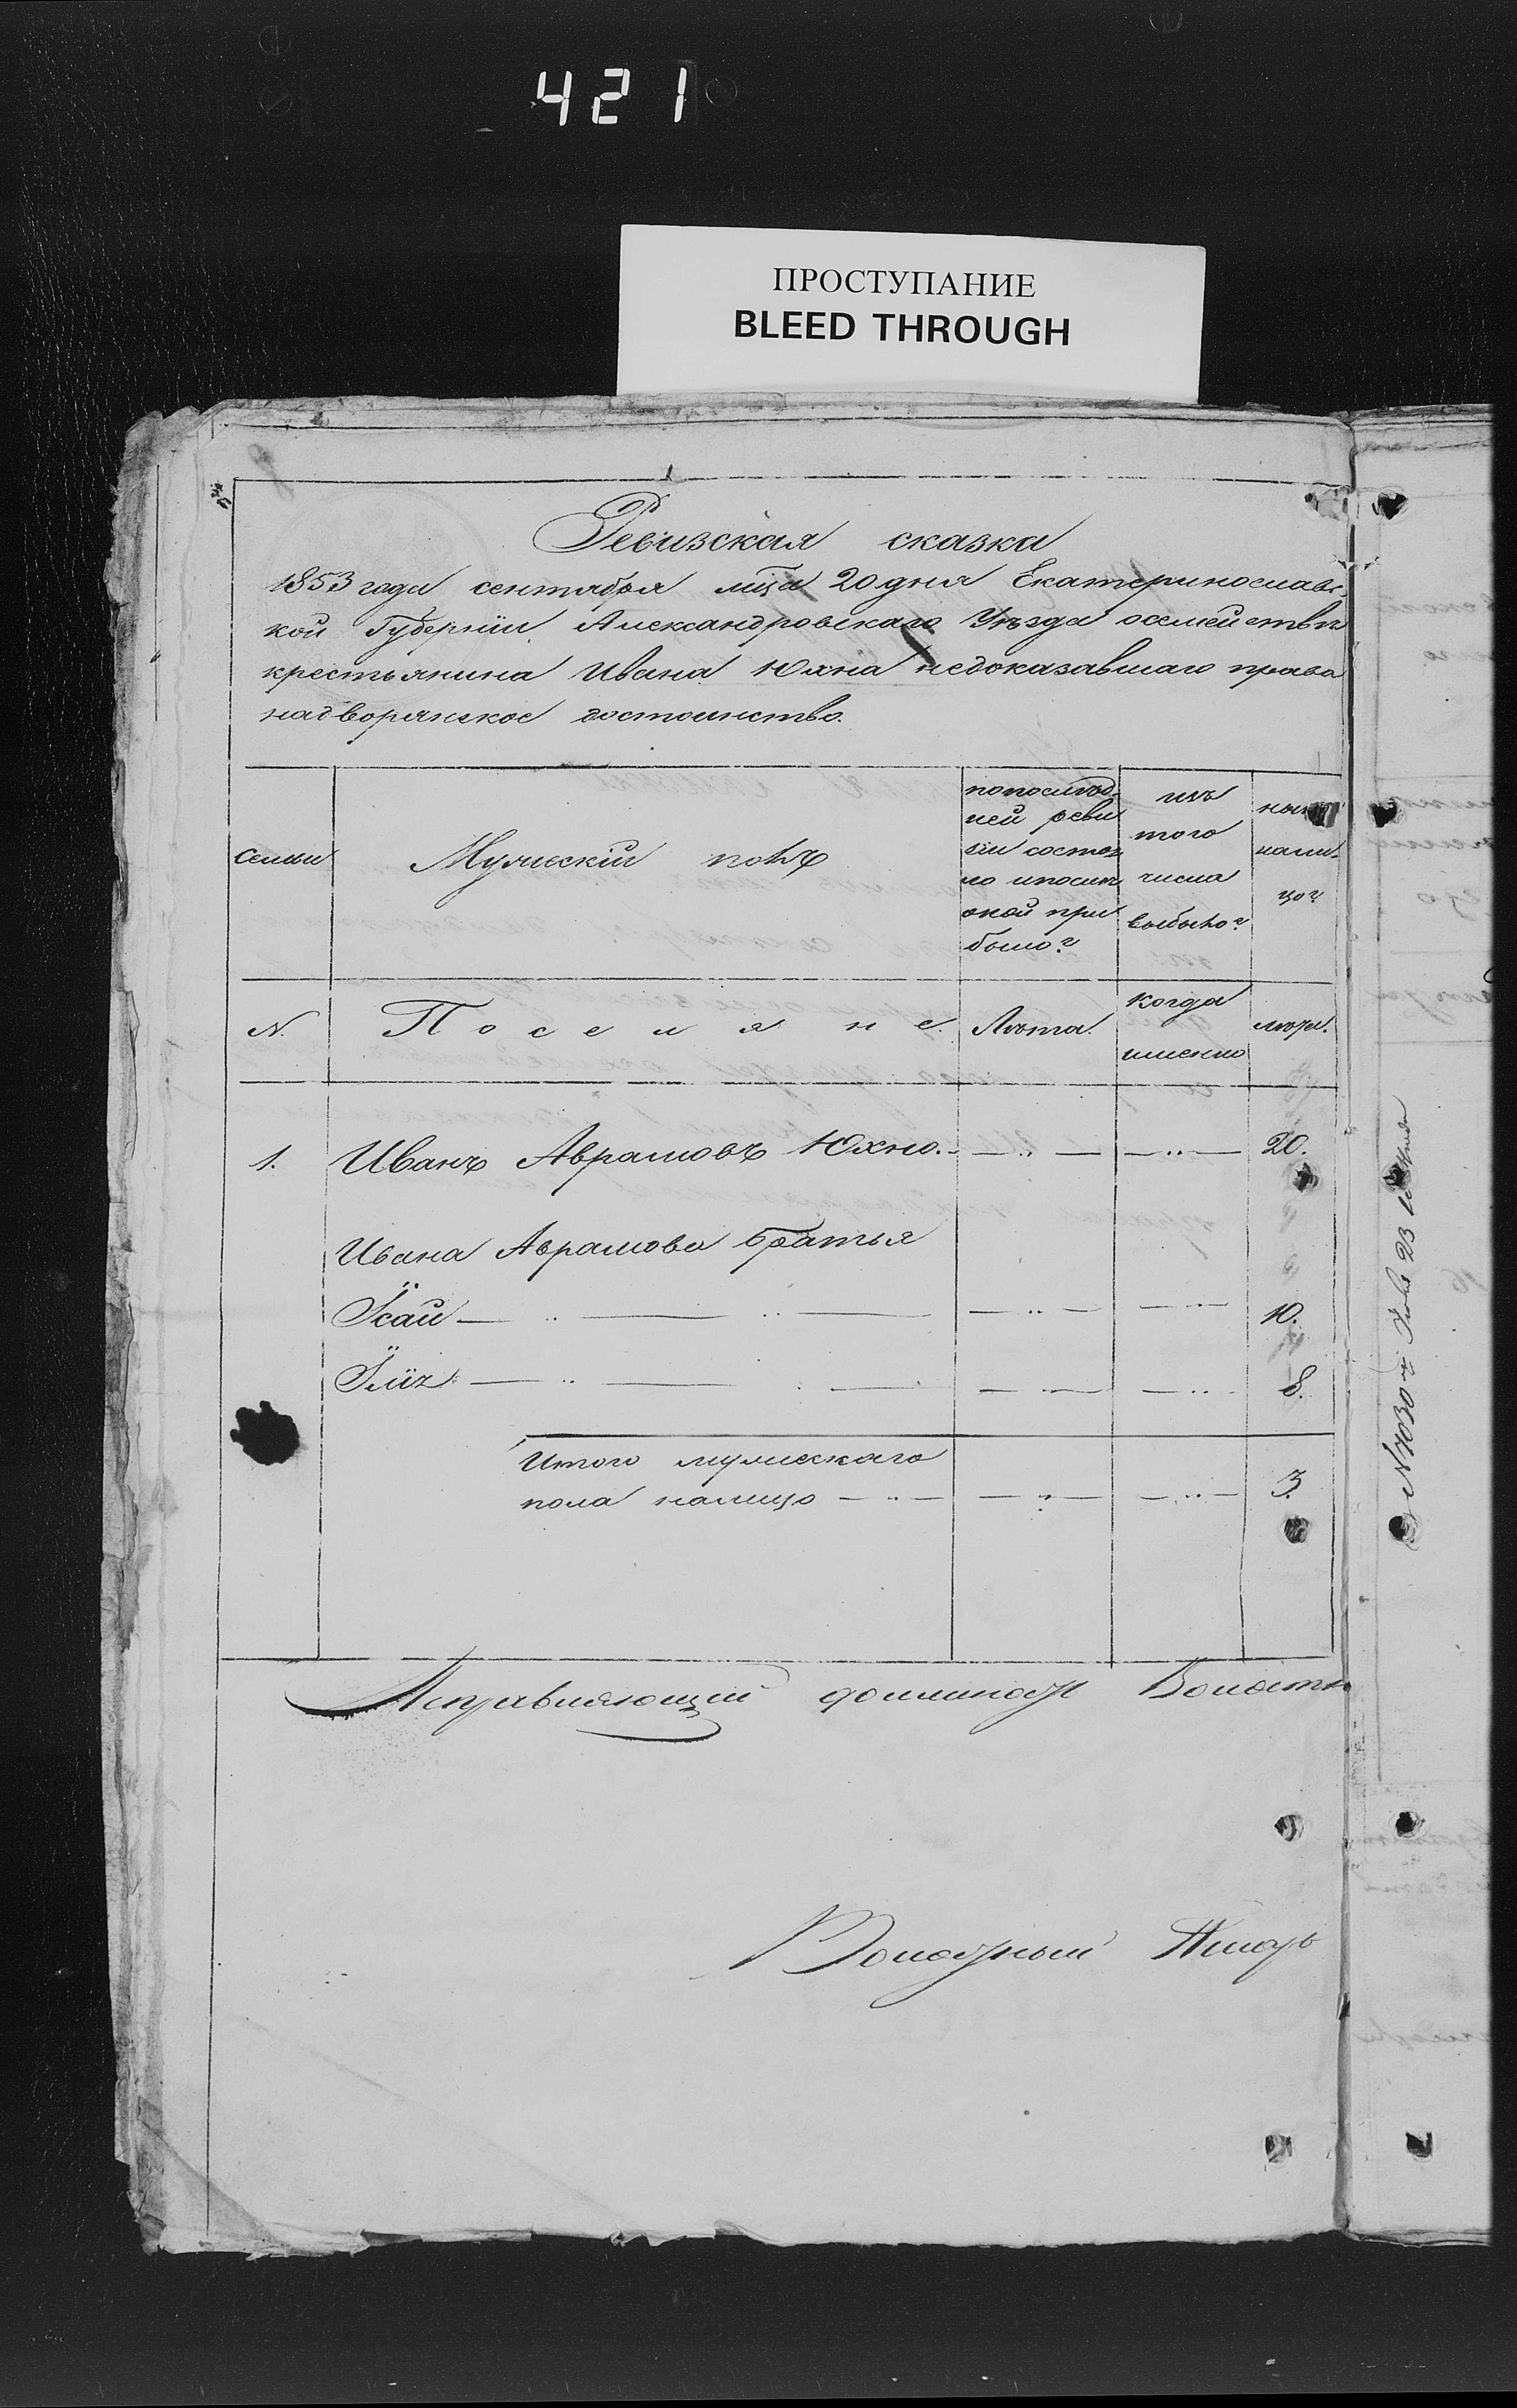 421
ПРОСТУПАНИЕ
BLEED THROUGH
Ревизская сказка
1853 года сентября мца 20 дня Екатеринославс-
кой Губерніи Александровскаго Уѣзда осемействѣ
крестьянина Ивана Юхна недоказавшаго права
надворянское достоинство.
Семьи
Мужескій полъ
попослѣд-
ней реви
зіи состоя
ло ипослѣ
оной при
было?
изъ
того
числа
выбыло?
нынѣ
нали-
цо?
N.
Поселяне.
Лѣта.
когда
именно
лѣта.
1. Иванъ Аврамовъ Юхно. — „ — — „ — 20.
Ивана Аврамова братья
Исай — „ — „ — — „ — — „ — 10.
Илія — „ — — — „ — — „ — 8.
Итого мужескаго
пола налицо — „ — — „ — — „ — 3.
Исправляющій должность Волостн
Волостный Писарь
N 1030
23